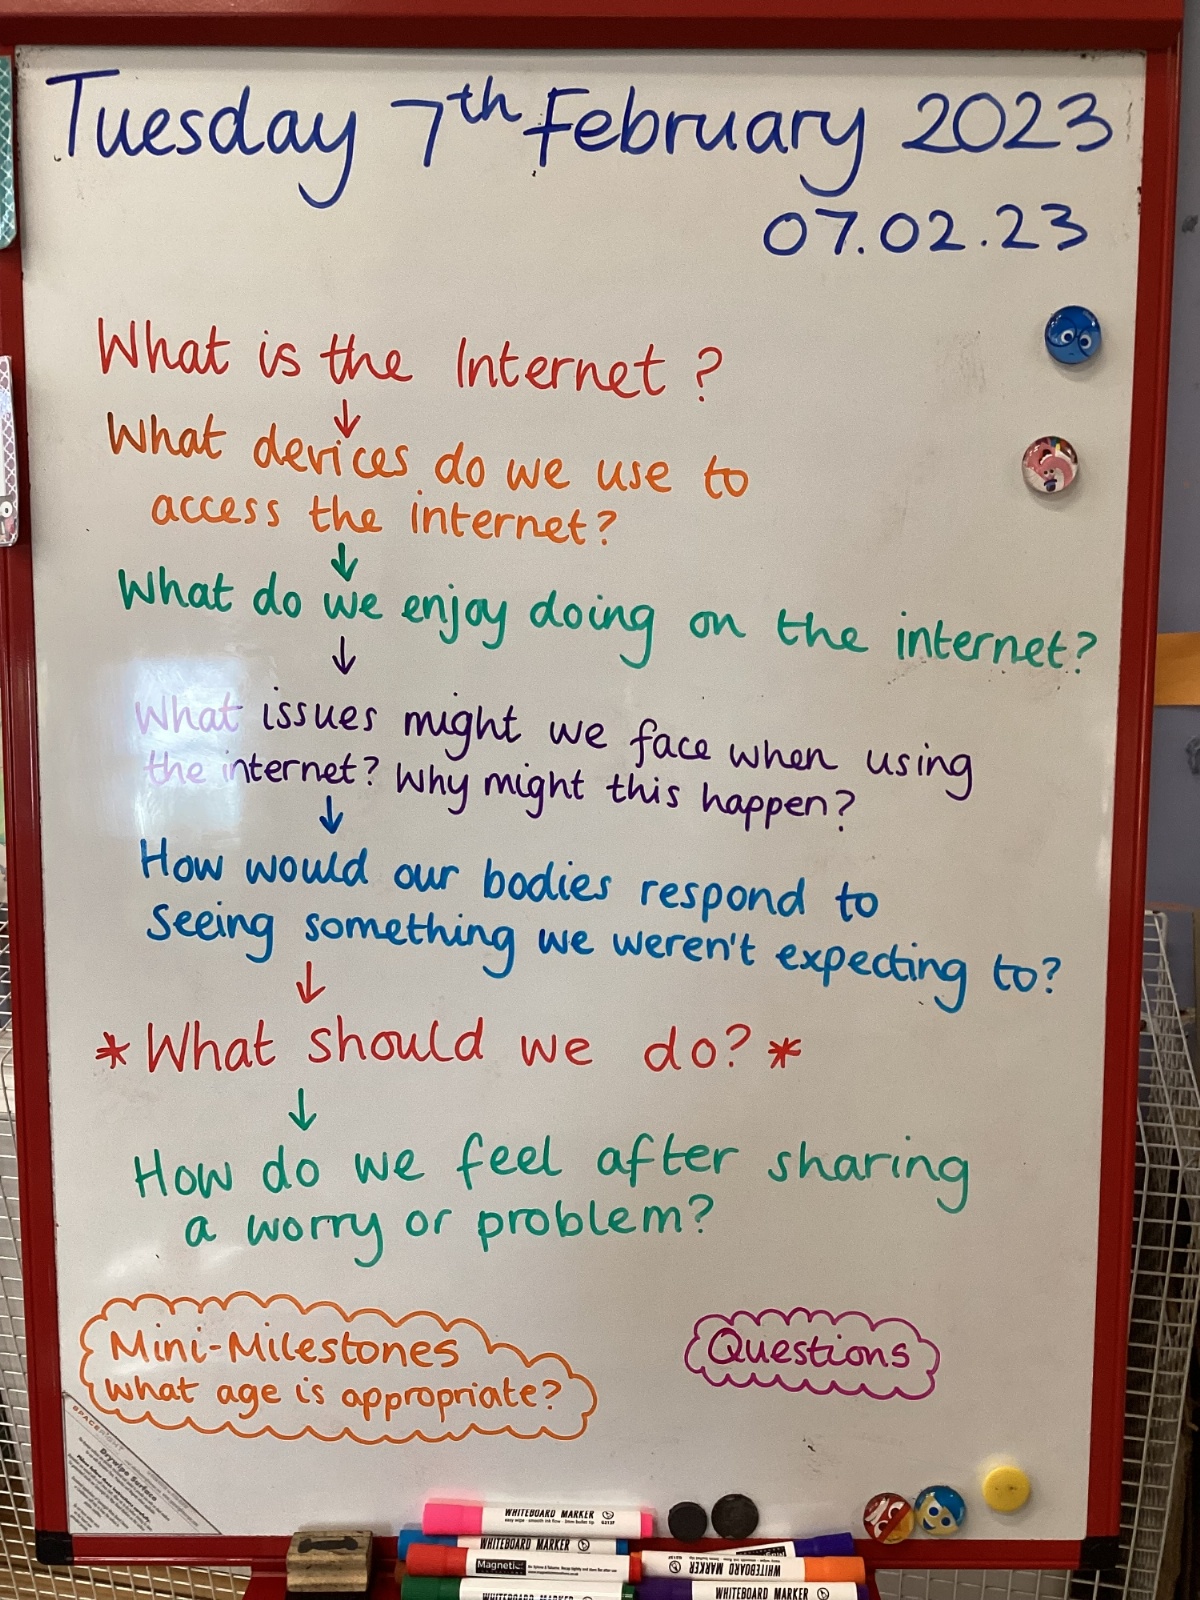 Tuesday 7th February 2023
07.02.23
What is the Internet?
↓
What devices do we use to
access the internet?
↓
What do we enjoy doing on the internet?
↓
What issues might we face when using
the internet? Why might this happen?
↓
How would our bodies respond to
seeing something we weren't expecting to?
↓
* What should we do? *
↓
How do we feel after sharing
a worry or problem?
Mini-Milestones
What age is appropriate?
Questions
SPACERIGHT
Drywipe Surface
WHITEBOARD MARKER
WHITEBOARD MARKER
Magnetic
WHITEBOARD MARKER
WHITEBOARD MARKER
WHITEBOARD MARKER